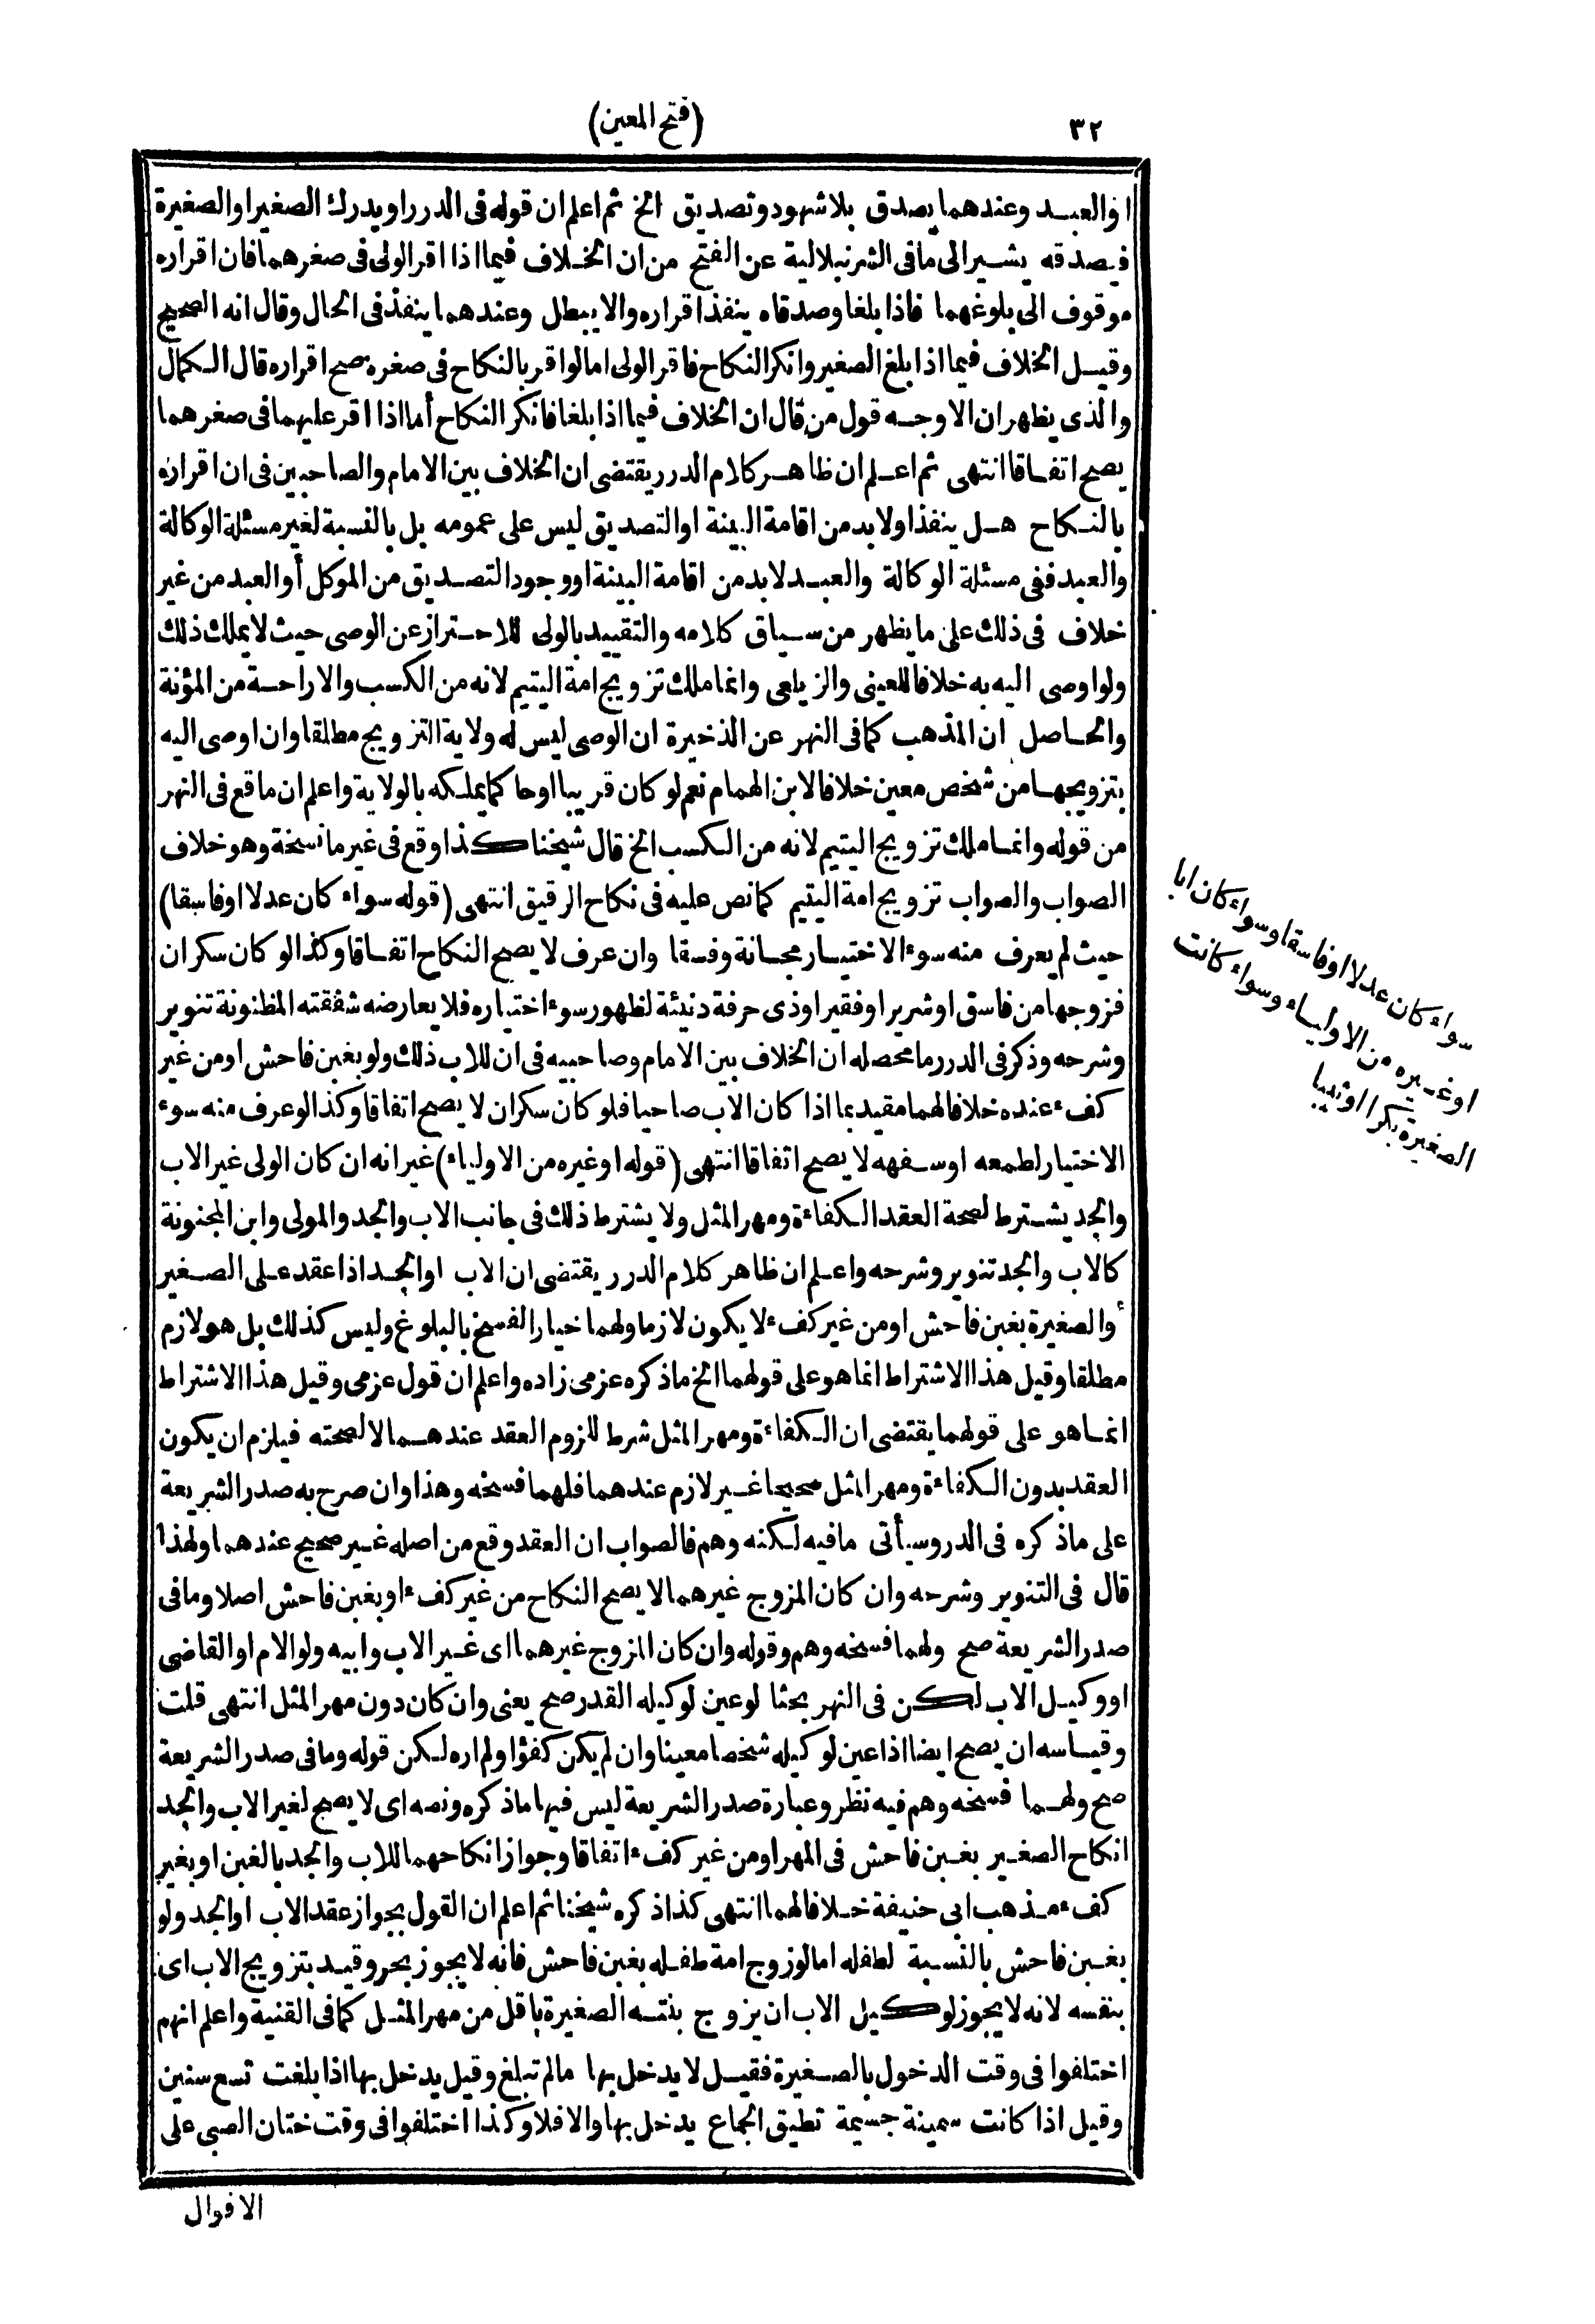 ٣٢
(فتح المعين)
اوالعبد وعندهما يصدق بلا شهود وتصديق الخ ثم اعلم ان قوله فى الدرر او يدرك الصغير او الصغيرة
فيصدقه يشير الى ما فى الشرنبلالية عن الفتح من ان الخلاف فيما اذا اقر الولى فى صغرهما فان اقراره
موقوف الى بلوغهما فاذا بلغا وصدقاه ينفذ اقراره والا يبطل وعندهما ينفذ فى الحال وقال انه الصحيح
وقيل الخلاف فيما اذا بلغ الصغير وانكر النكاح فاقر الولى اما لو اقر بالنكاح فى صغره صح اقراره قال الكمال
والذى يظهر ان الاوجه قول من قال ان الخلاف فيما اذا بلغا فانكر النكاح أما اذا اقر عليهما فى صغرهما
يصح اتفاقا انتهى ثم اعلم ان ظاهر كلام الدرر يقتضى ان الخلاف بين الامام والصاحبين فى ان اقراره
بالنكاح هل ينفذ او لا بد من اقامة البينة او التصديق ليس على عمومه بل بالنسبة لغير مسئلة الوكالة
والعبد ففى مسئلة الوكالة والعبد لا بد من اقامة البينة او وجود التصديق من الموكل أو العبد من غير
خلاف فى ذلك على ما يظهر من سياق كلامه والتقييد بالولى للاحتراز عن الوصى حيث لا يملك ذلك
ولو اوصى اليه به خلافا للعينى والزيلعى وانما ملك تزويج امة اليتيم لانه من الكسب والاراحة من المؤنة
والحاصل ان المذهب كما فى النهر عن الذخيرة ان الوصى ليس له ولاية التزويج مطلقا وان اوصى اليه
بتزويجها من شخص معين خلافا لابن الهمام نعم لو كان قريبا او حاكما يملكه بالولاية واعلم ان ما قع فى النهر
من قوله وانما ملك تزويج اليتيم لانه من الكسب الخ قال شيخنا كذا وقع فى غير ما نسخة وهو خلاف
الصواب والصواب تزويج امة اليتيم كما نص عليه فى نكاح الرقيق انتهى (قوله سواء كان عدلا او فاسقا)
حيث لم يعرف منه سوء الاختيار مجانة وفسقا وان عرف لا يصح النكاح اتفاقا وكذا لو كان سكران
فزوجها من فاسق او شرير او فقير او ذى حرفة دنيئة لظهور سوء اختياره فلا يعارضه شفقته المظنونة تنوير
وشرحه وذكر فى الدرر ما محصله ان الخلاف بين الامام وصاحبيه فى ان للاب ذلك ولو بغبن فاحش او من غير
كفء عنده خلافا لهما مقيد بما اذا كان الاب صاحيا فلو كان سكران لا يصح اتفاقا وكذا لو عرف منه سوء
الاختيار لطمعه او سفهه لا يصح اتفاقا انتهى (قوله او غيره من الاولياء) غير انه ان كان الولى غير الاب
والجد يشترط لصحة العقد الكفاءة ومهر المثل ولا يشترط ذلك فى جانب الاب والجد والمولى وابن المجنونة
كالاب والجد تنوير وشرحه واعلم ان ظاهر كلام الدرر يقتضى ان الاب او الجد اذا عقد على الصغير
أو الصغيرة بغبن فاحش او من غير كفء لا يكون لازما ولهما خيار الفسخ بالبلوغ وليس كذلك بل هو لازم
مطلقا وقيل هذا الاشتراط انما هو على قولهما الخ ما ذكره عزمى زاده واعلم ان قول عزمى وقيل هذا الاشتراط
انما هو على قولهما يقتضى ان الكفاءة ومهر المثل شرط للزوم العقد عندهما لا لصحته فيلزم ان يكون
العقد بدون الكفاءة ومهر المثل صحيحا غير لازم عندهما فلهما فسخه وهذا وان صرح به صدر الشريعة
على ما ذكره فى الدر وسيأتى ما فيه لكنه وهم فالصواب ان العقد وقع من اصله غير صحيح عندهما ولهذا
قال فى التنوير وشرحه وان كان المزوج غيرهما لا يصح النكاح من غير كفء او بغبن فاحش اصلا وما فى
صدر الشريعة صح ولهما فسخه وهم وقوله وان كان المزوج غيرهما اى غير الاب وابيه ولو الام او القاضى
او وكيل الاب لكن فى النهر بحثا لو عين لوكيله القدر صح يعنى وان كان دون مهر المثل انتهى قلت
وقياسه ان يصح ايضا اذا عين لوكيله شخصا معينا وان لم يكن كفؤا ولم اره لكن قوله وما فى صدر الشريعة
صح ولهما فسخه وهم فيه نظر وعبارة صدر الشريعة ليس فيها ما ذكره ونصه اى لا يصح لغير الاب والجد
انكاح الصغير بغبن فاحش فى المهر او من غير كفء اتفاقا وجواز انكاحهما للاب والجد بالغبن او بغير
كفء مذهب ابى حنيفة خلافا لهما انتهى كذا ذكره شيخنا ثم اعلم ان القول بجواز عقد الاب او الجد ولو
بغبن فاحش بالنسبة لطفله اما لو زوج امة طفله بغبن فاحش فانه لا يجوز بحر وقيد بتزويج الاب اى
بنفسه لانه لا يجوز لوكيل الاب ان يزوج بنته الصغيرة باقل من مهر المثل كما فى القنية واعلم انهم
اختلفوا فى وقت الدخول بالصغيرة فقيل لا يدخل بها ما لم تبلغ وقيل يدخل بها اذا بلغت تسع سنين
وقيل اذا كانت سمينة جسيمة تطيق الجماع يدخل بها والا فلا وكذا اختلفوا فى وقت ختان الصبى على
الاقوال
سواء كان عدلا او فاسقا وسواء كان ابا
او غيره من الاولياء وسواء كانت
الصغيرة بكرا او ثيبا